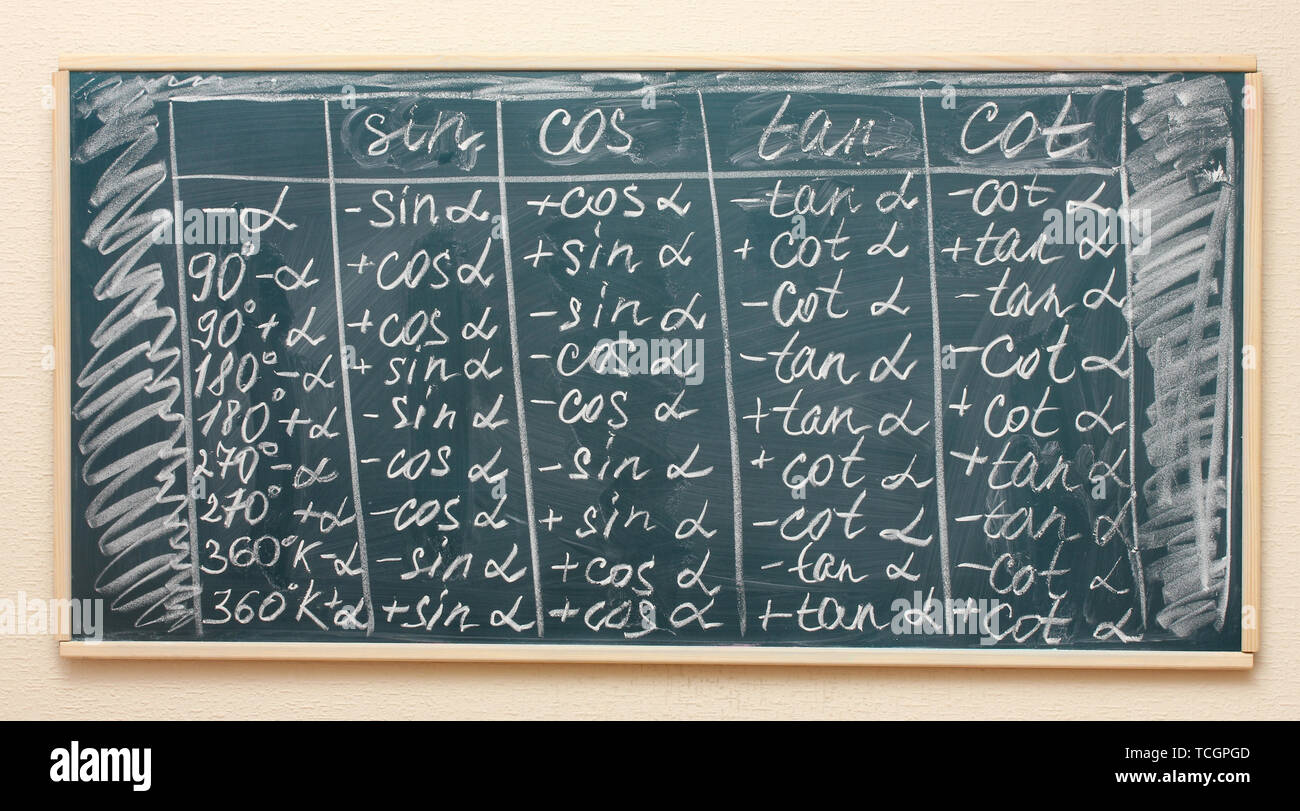 sin cos tan cot
-α -sin α +cos α -tan α -cot α
90°-α +cos α +sin α +cot α +tan α
90°+α +cos α -sin α -cot α -tan α
180°-α +sin α -cos α -tan α -cot α
180°+α -sin α -cos α +tan α +cot α
270°-α -cos α -sin α +cot α +tan α
270°+α -cos α +sin α -cot α -tan α
360°K-α -sin α +cos α -tan α -cot α
360°K+α +sin α +cos α +tan α +cot α
alamy
Image ID: TCGPGD
www.alamy.com